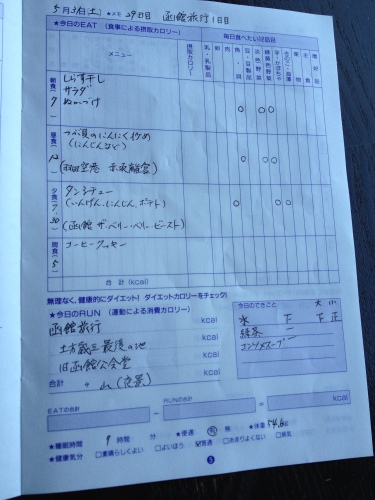 5月31日(土) ★メモ 29日目 函館旅行1日目
★今日のEAT (食事による摂取カロリー)
毎日食べたい12品目
メニュー
摂取カロリー
乳・乳製品
卵
肉
魚・貝
豆・豆製品
淡色野菜
緑黄色野菜
果物
主食
嗜好品
朝食(7
しらす干し
サラダ
ぬかづけ
昼食(12
つぶ貝のにんにく炒め
(にんじんなど)
(羽田空港 赤坂離宮)
夕食(7.30)
タンシチュー
(いんげん、にんじん、ポテト)
(函館 ザ・ベリー・ベリー・ビースト)
間食(5
コーヒークッキー
合計 (kcal)
無理なく、健康的にダイエット! ダイエットカロリーをチェック!
★今日のRUN (運動による消費カロリー)
今日のできごと
大 小
函館旅行 kcal
水 下 下 正
土方歳三最後の地 kcal
緑茶 一
旧函館公会堂 kcal
コンソメスープ 一
合計 〃 山 (夜景) kcal
EATの合計 − RUNの合計 = kcal
★睡眠時間 9 時間 分 ★便通 有 無 ★体重 54.6kg
★健康気分 □素晴らしくよい □よいほう ☑普通 □あまりよくない □病気
5